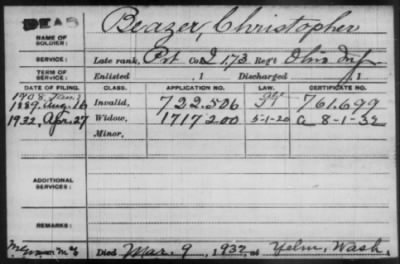 DEAD
Beazer, Christopher
NAME OF SOLDIER:
SERVICE: Late rank, Pvt. Co. I, 173, Reg't Ohio Inf
TERM OF SERVICE: Enlisted , 1 Discharged , 1
DATE OF FILING. CLASS. APPLICATION NO. LAW. CERTIFICATE NO.
1908, Jan.
1889, Aug. 16 Invalid, 722.506 761.699
1932, Apr. 27 Widow, 1717200 5-1-20 a 8-1-32
Minor,
ADDITIONAL SERVICES:
REMARKS:
Died Mar. 9, 1932, at Yelm, Wash.